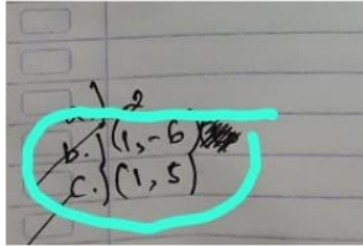 2
b. } (1, -6)
c. } (1, 5)